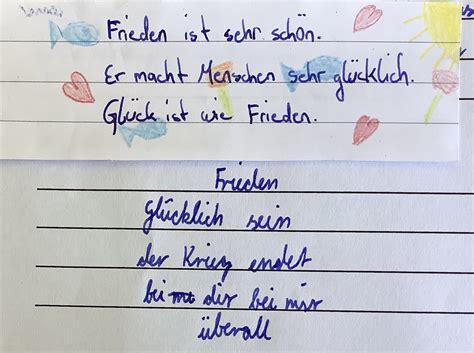 Frieden ist sehr schön.
Er macht Menschen sehr glücklich.
Glück ist wie Frieden.
Frieden
glücklich sein
der Krieg endet
bei dir bei mir
überall